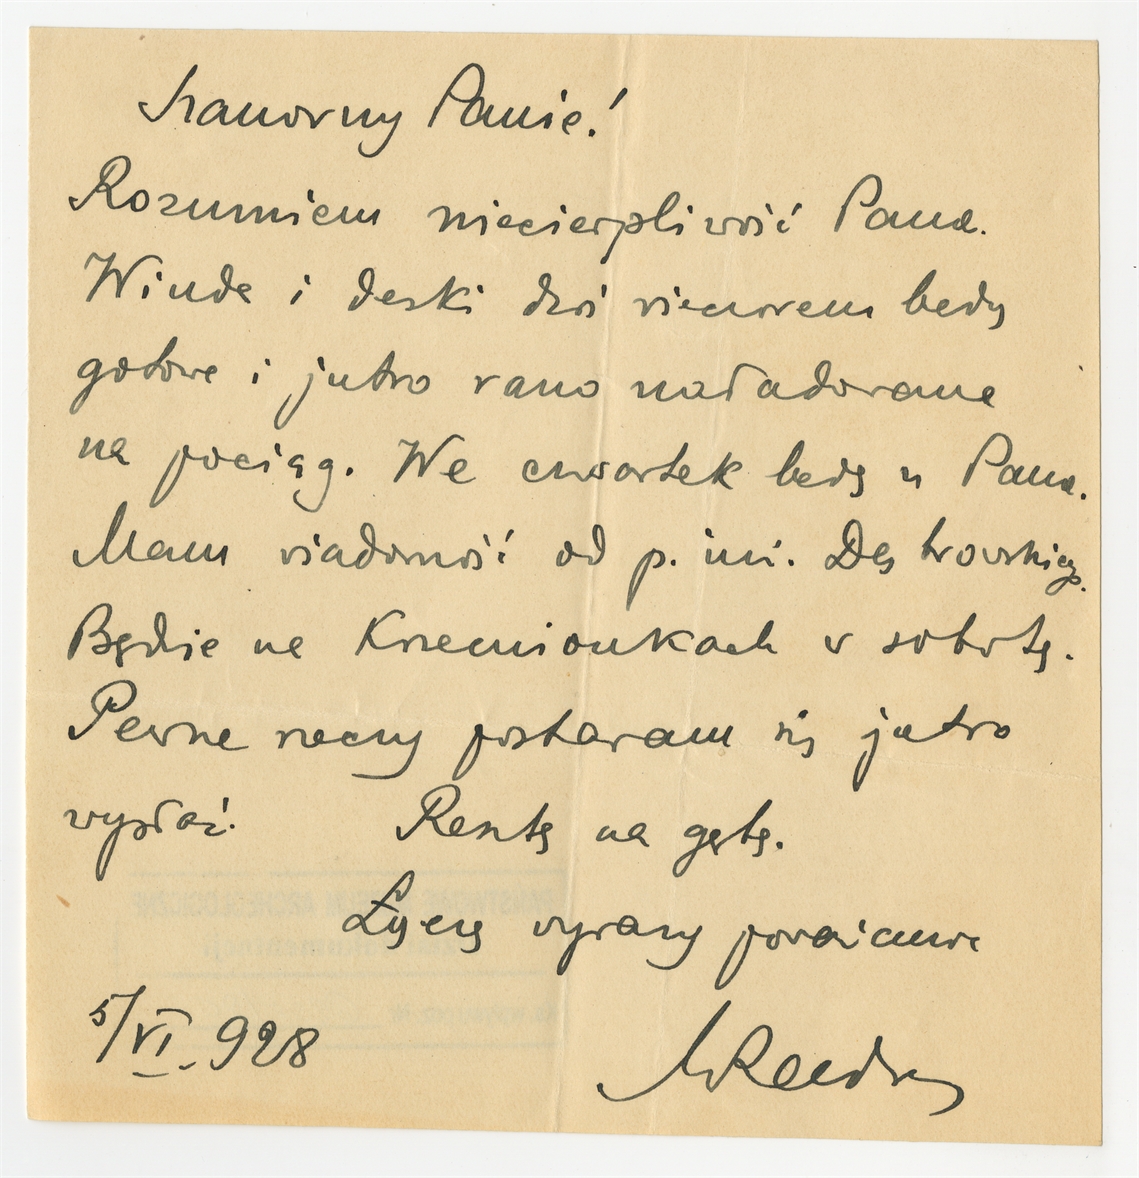 Szanowny Panie!
Rozumiem niecierpliwość Pana.
Windę i deski dziś wieczorem będą
gotowe i jutro rano naładowane
na pociąg. We czwartek będę u Pana.
Mam wiadomość od p. inż.
Będzie na Krzemionkach w sobotę.
Pewne rzeczy postaram się jutro
wysłać. Resztę na gębę.
Łączę wyrazy poważania
5/VI. 928